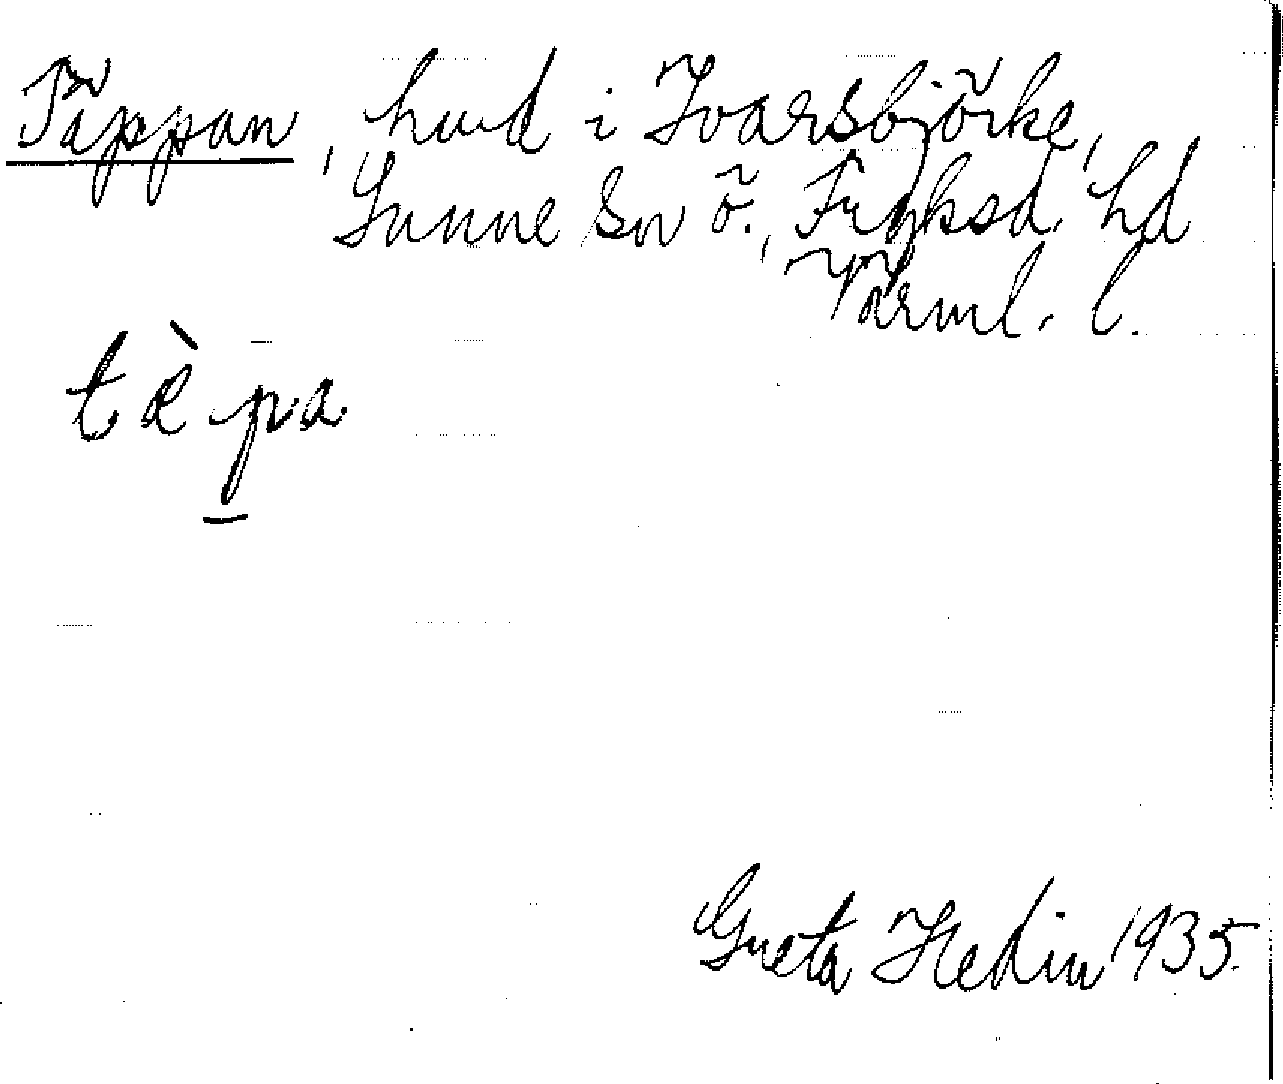 Täppan, hmd i Ivarsbjörke,
Sunne sn ö., Fryksd. hd
Värml. l.
tὲpa
Greta Hedin 1935.